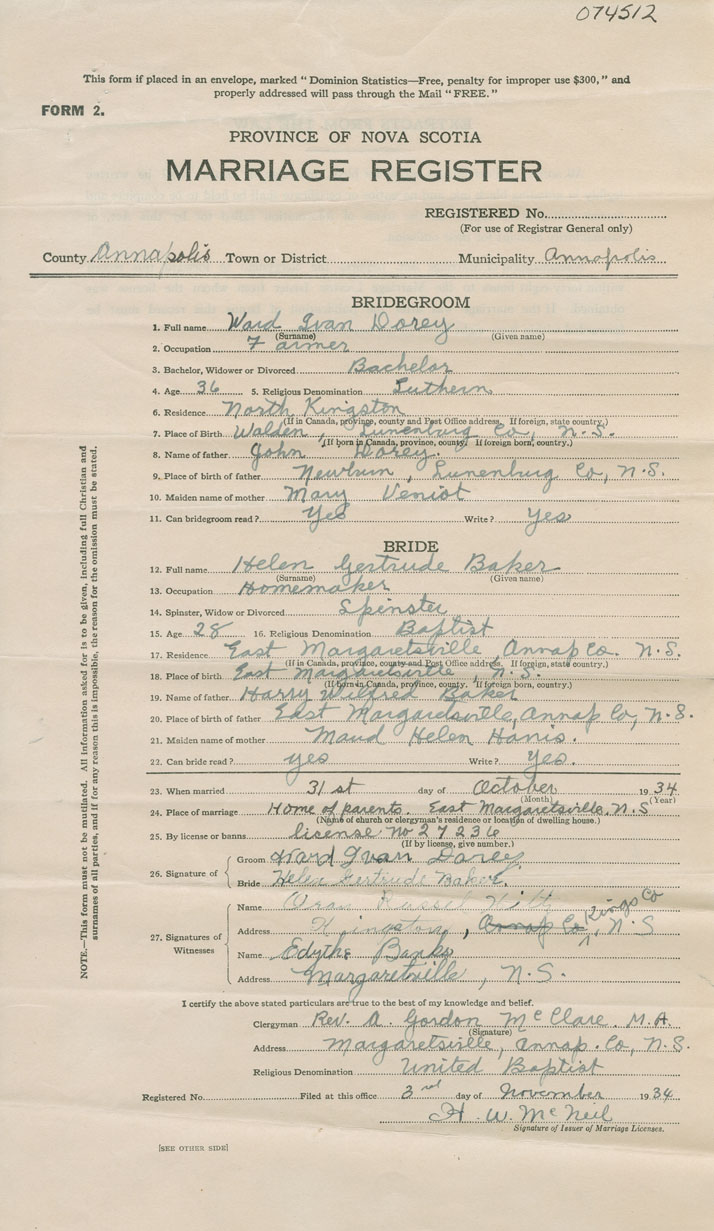 074512
This form if placed in an envelope, marked "Dominion Statistics—Free, penalty for improper use $300," and
properly addressed will pass through the Mail "FREE."
FORM 2.
PROVINCE OF NOVA SCOTIA
MARRIAGE REGISTER
REGISTERED No.
(For use of Registrar General only)
County Annapolis Town or District Municipality Annapolis
BRIDEGROOM
1. Full name Ward Ivan Dorey
(Surname) (Given name)
2. Occupation Farmer
3. Bachelor, Widower or Divorced Bachelor
4. Age 36 5. Religious Denomination Luthern
6. Residence North Kingston
(If in Canada, province, county and Post Office address. If foreign, state country.)
7. Place of Birth Walden, Lunenburg Co, N.S.
(If born in Canada, province, county. If foreign born, country.)
8. Name of father John Dorey.
9. Place of birth of father Newburn, Lunenburg Co, N.S.
10. Maiden name of mother Mary Veniot
11. Can bridegroom read? Yes Write? Yes
BRIDE
12. Full name Helen Gertrude Baker
(Surname) (Given name)
13. Occupation Homemaker
14. Spinster, Widow or Divorced Spinster
15. Age 28 16. Religious Denomination Baptist
17. Residence East Margaretsville, Annap Co. N.S.
(If in Canada, province, county and Post Office address. If foreign, state country.)
18. Place of birth East Margaretsville, N.S.
(If born in Canada, province, county. If foreign born, country.)
19. Name of father Harry Wilfred Baker
20. Place of birth of father East Margaretsville, Annap Co, N.S.
21. Maiden name of mother Maud Helen Harris.
22. Can bride read? yes Write? Yes.
23. When married 31st day of October 1934
(Month) (Year)
24. Place of marriage Home of parents. East Margaretsville. N.S
(Name of church or clergyman's residence or location of dwelling house.)
25. By license or banns license No 27236
(If by license, give number.)
26. Signature of
Groom Ward Ivan Dorey
Bride Helen Gertrude Baker.
27. Signatures of Witnesses
Name Russel
Address Kingston, Annap Co, Kings Co N.S
Name Edythe Banks
Address Margaretville, N.S.
I certify the above stated particulars are true to the best of my knowledge and belief.
Clergyman Rev. A. Gordon McClare. M.A.
(Signature)
Address Margaretsville, Annap. Co, N.S.
Religious Denomination United Baptist
Registered No. Filed at this office 3rd day of November 1934
H. W. McNeil
Signature of Issuer of Marriage Licenses.
[SEE OTHER SIDE]
NOTE.—This form must not be mutilated. All information asked for is to be given, including full Christian and
surnames of all parties, and if for any reason this is impossible, the reason for the omission must be stated.